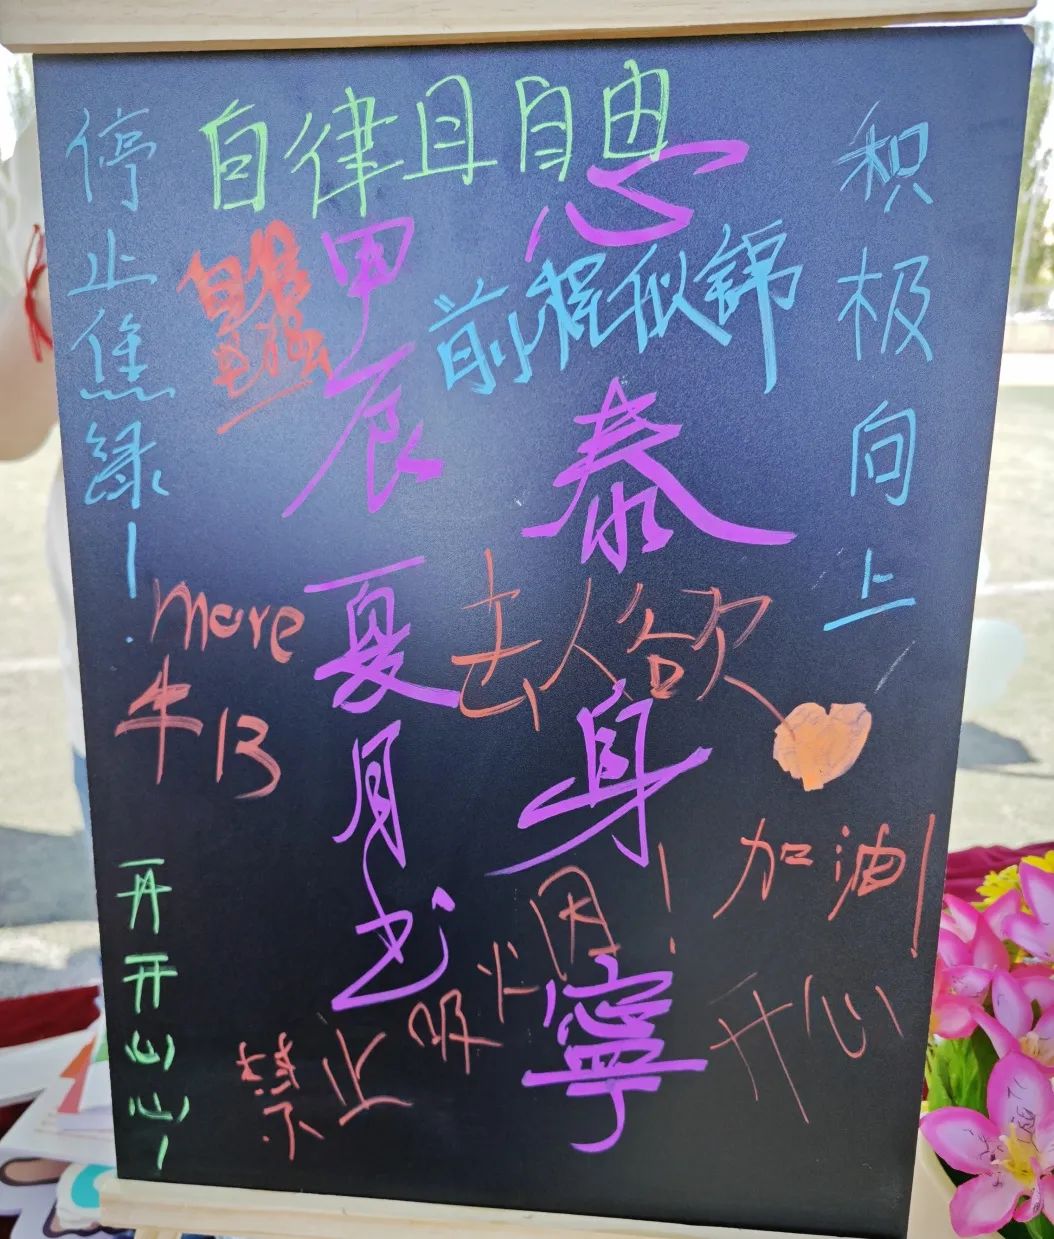 自律且自由
停止焦绿!
积极向上
前程似锦
心泰身寧
甲辰夏月书
去人欲
more
牛13
加油!
开开心心!
禁止吸烟!
开心